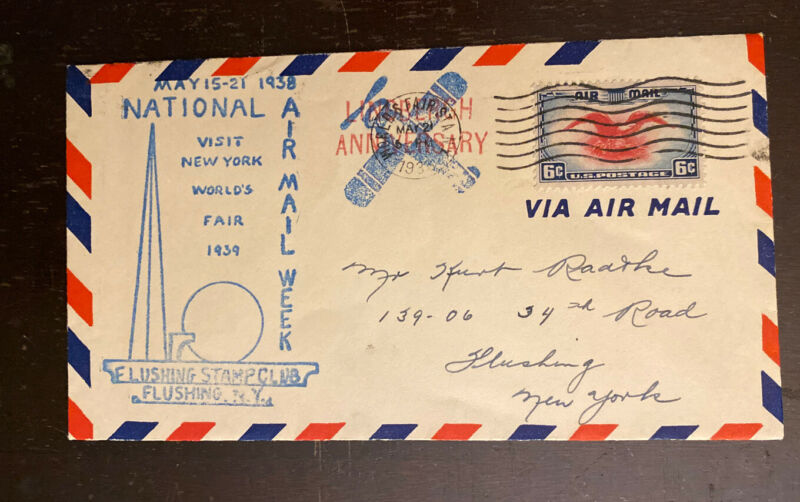 MAY 15-21 1938
NATIONAL
AIR MAIL WEEK
VISIT
NEW YORK
WORLD'S
FAIR
1939
FLUSHING STAMP CLUB
FLUSHING, N.Y.
ANNIVERSARY
WORLD'S FAIR STA.
MAY 21
AIR MAIL
6¢ U.S. POSTAGE 6¢
VIA AIR MAIL
Mr Kurt Raathke
139-06 34th Road
Flushing
New York